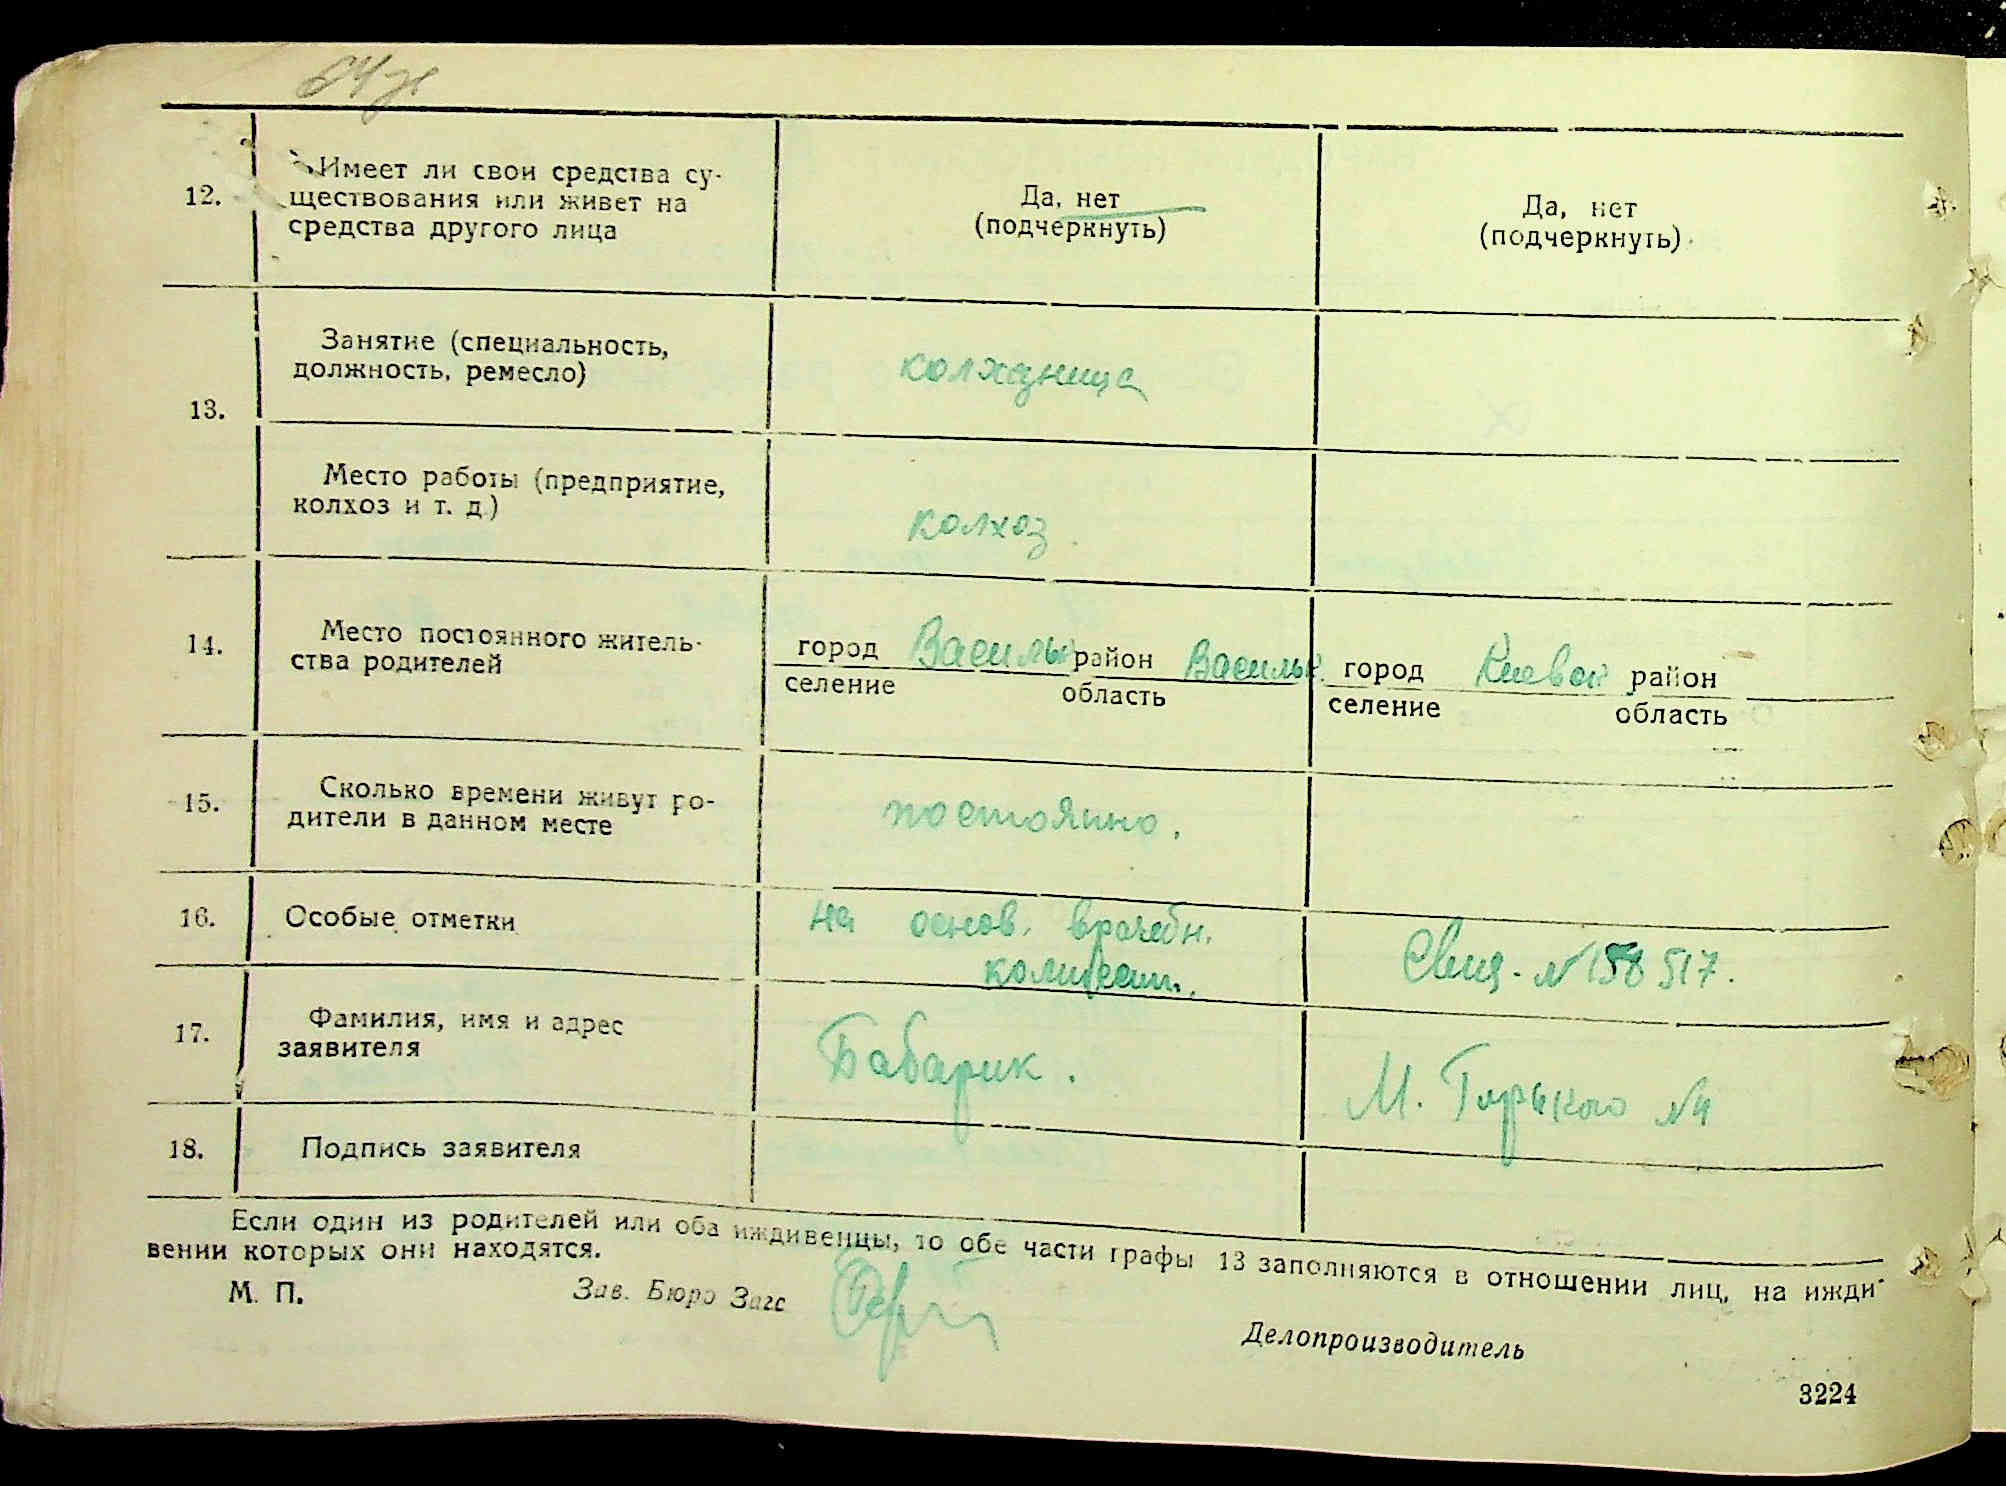 12. Имеет ли свои средства су-
ществования или живет на
средства другого лица
Да, нет
(подчеркнуть)
Да, нет
(подчеркнуть)
13.
Занятие (специальность,
должность, ремесло)
колхозница
Место работы (предприятие,
колхоз и т. д.)
колхоз
14. Место постоянного житель-
ства родителей
город Васильк район Васильк.
селение область
город Киевск район
селение область
15. Сколько времени живут ро-
дители в данном месте
постояино.
16. Особые отметки
на основ. врачебн.
комиссии.
Свид. № 158517.
17. Фамилия, имя и адрес
заявителя
Бабарик.
М. Горького №4
18. Подпись заявителя
Если один из родителей или оба иждивенцы, то обе части графы 13 заполняются в отношении лиц, на ижди-
вении которых они находятся.
М. П. Зав. Бюро Загс
Делопроизводитель
3224